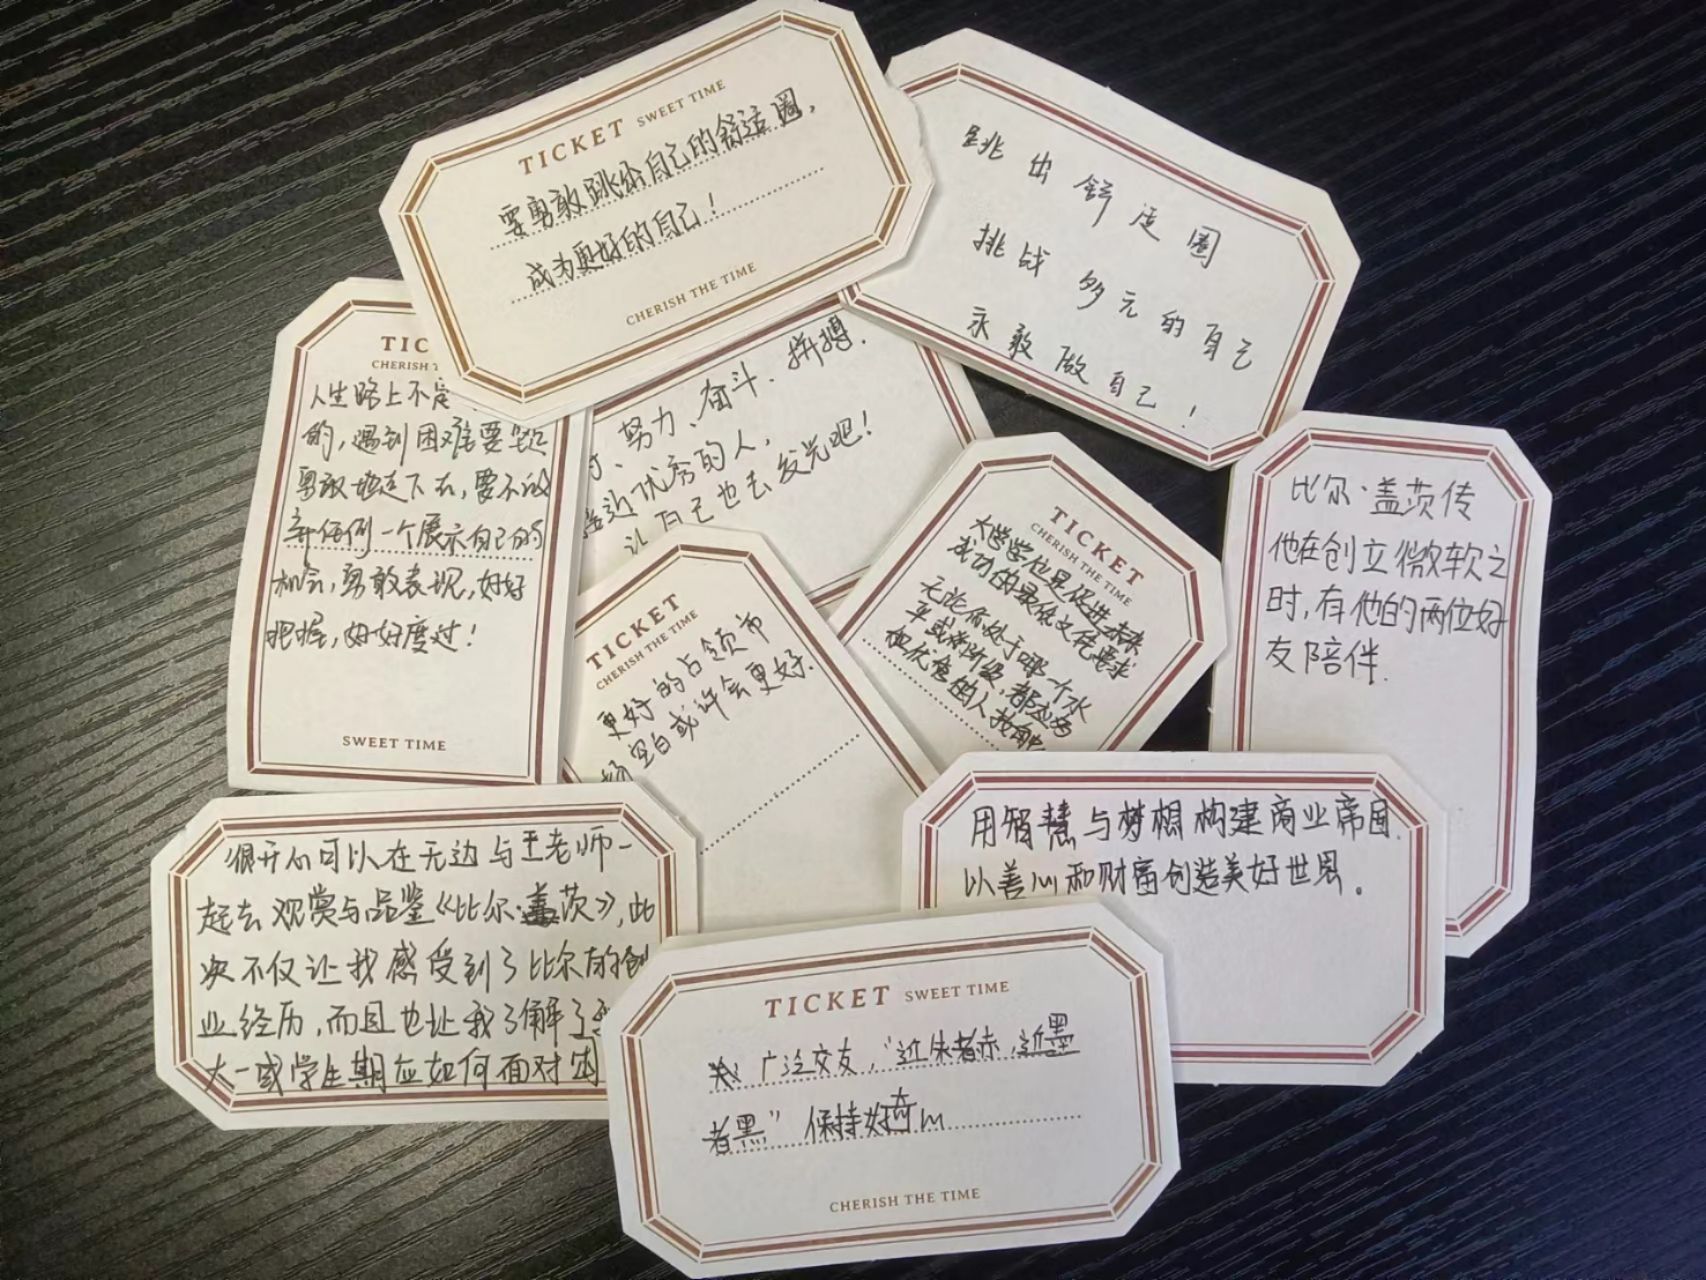 TICKET SWEET TIME
要勇敢跳出自己的舒适圈，
成为更好的自己！
CHERISH THE TIME
跳出舒适圈
挑战多元的自己
永敢做自己！
TIC
CHERISH T
人生路上不
的，遇到困难要
勇敢地走下去，要不放
弃任何一个展示自己的
机会，勇敢表现，好好
把握，好好度过！
SWEET TIME
努力、奋斗、拼搏.
近优秀的人，
让自己也去发光吧！
TICKET
CHERISH THE TIME
更好的占领市
场空白或许会更好.
TICKET
CHERISH THE TIME
大学学位是促进未来
成功的最低文凭要求
无论你处于哪一个水
平或阶级，都
优信的人
比尔·盖茨传
他在创立微软之
时，有他的两位好
友陪伴.
很开心可以在无边与王老师一
起去观赏与品鉴《比尔·盖茨》，此
次不仅让我感受到了比尔的创
业经历，而且也让我了解了
大一或学生期应如何面对
用智慧与梦想构建商业帝国.
以善心和财富创造美好世界。
TICKET SWEET TIME
广泛交友，“近朱者赤，近墨
者黑”保持好奇心
CHERISH THE TIME